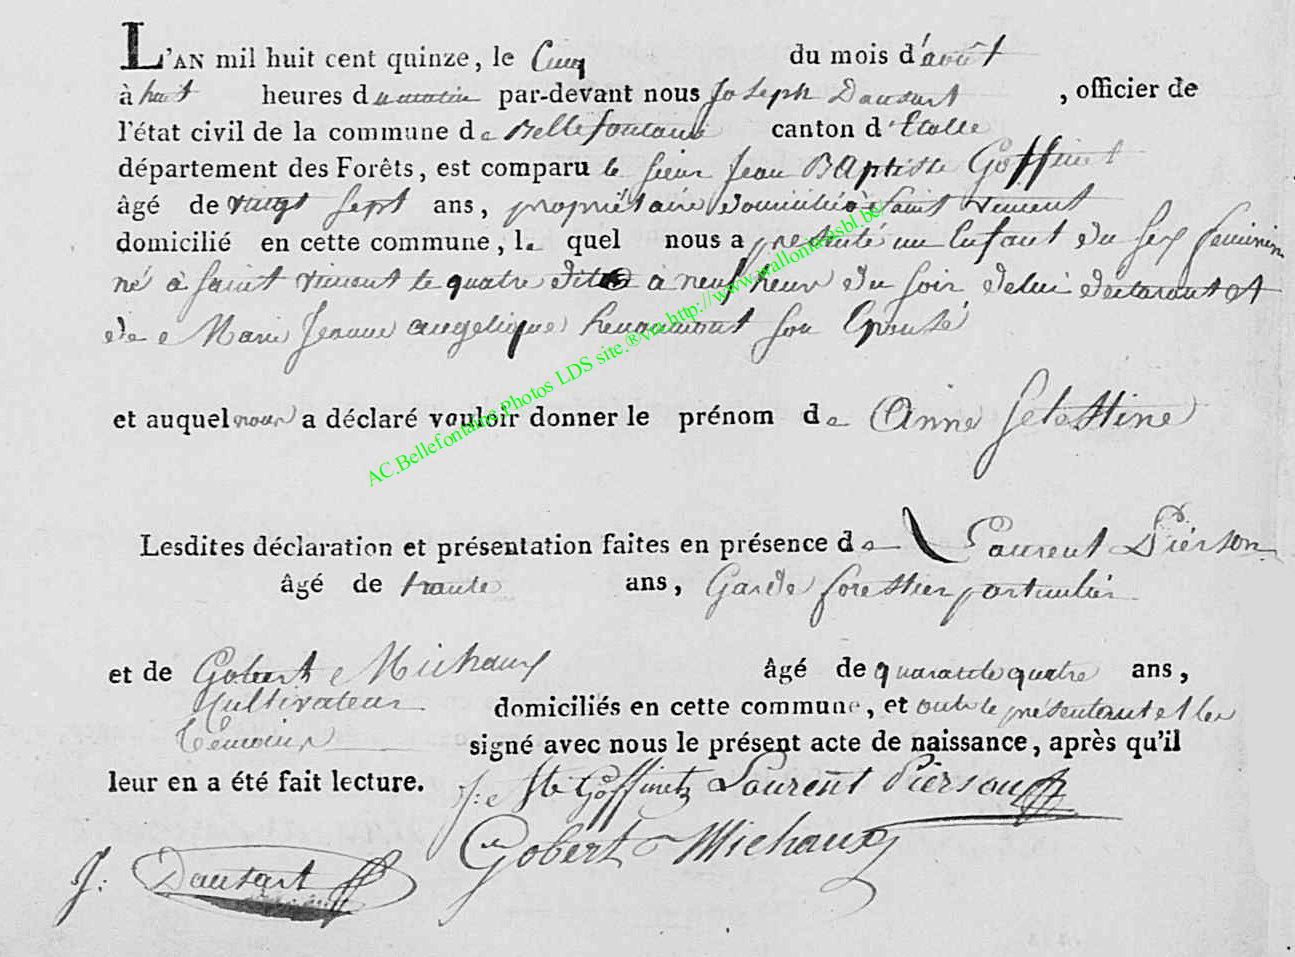 L'AN mil huit cent quinze, le Cinq du mois d'août
à huit heures du matin par-devant nous Joseph Dausart, officier de
l'état civil de la commune de Bellefontaine canton d'Etalle
département des Forêts, est comparu le sieur Jean BAptiste Goffinet
âgé de vingt sept ans, propriétaire domicilié à Saint Vincent
domicilié en cette commune, le quel nous a presenté un Enfant du sex feminin
né à saint vincent le quatre dito à neuf heur du soir delui declarant et
de Marie Jeanne angelique son Epouse
et auquel nous a déclaré vouloir donner le prénom de Anne Selestine
Lesdites déclaration et présentation faites en présence de Laurent Pierson
âgé de trante ans, Garde forestier particulier
et de Gobert Michaux âgé de quarante quatre ans,
Cultivateur domiciliés en cette commune, et ont le présentant et les
Temoins signé avec nous le présent acte de naissance, après qu'il
leur en a été fait lecture. J: Bte Goffinet Laurent Pierson
Gobert Michaux
J: Dausart
AC.Bellefontaine Photos LDS site.®via http://www.walloniasbl.be/